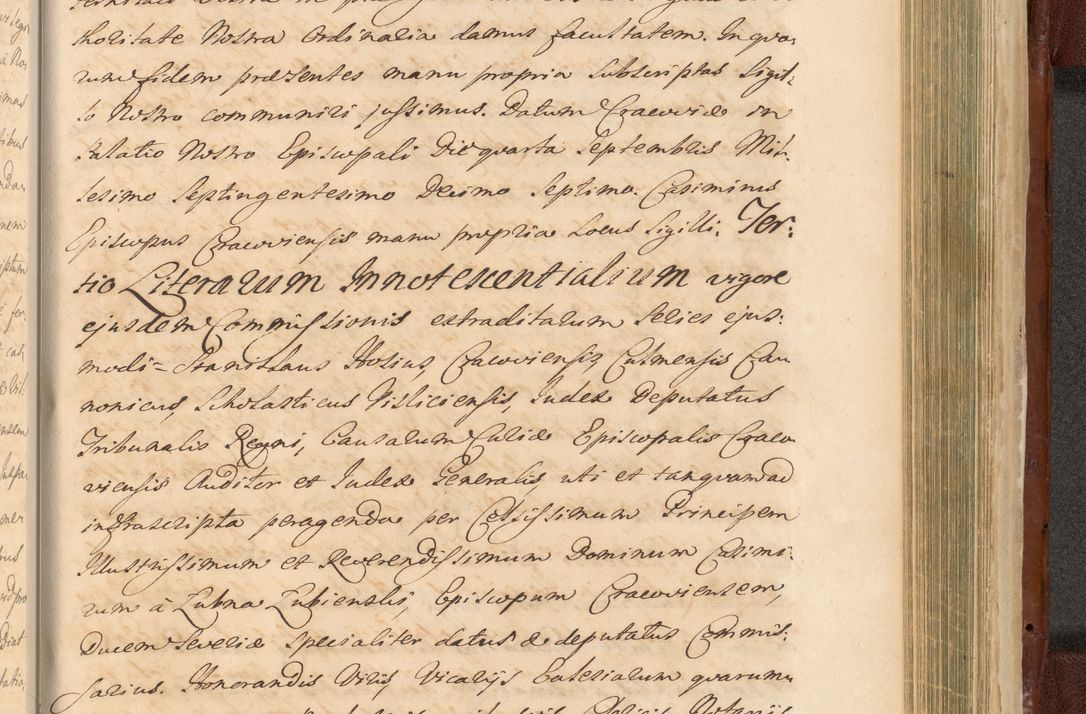 thoritate Nostra Ordinaria damus facultatem. In quo„
rum fidem præsentes manu propria Subscriptas Sigil„
lo Nostro communiri jussimus. Datum Cracoviæ in
Palatio Nostro Episcopali Die quarta Septembris Mil„
lesimo Septingentesimo Decimo Septimo. Casimirus
Episcopus Cracoviensis manu propria Locus Sigilli. Ter„
tio Literarum Innotescentialium vigore
ejusdem Commissionis extraditarum Series ejus„
modi = Stanislaus Hosius, Cracoviensis, Culmensis Ca„
nonicus, Scholasticus Visliciensis, Judex Deputatus
Tribunalis Regni, Causarum Curiæ Episcopalis Craco„
viensis Auditor et Judex Generalis, uti et tanquam ad
infrascripta peragenda per Celsissimum Principem
Illustrissimum et Reverendissimum Dominum Casimi„
rum à Lubna Lubienski, Episcopum Cracoviensem,
Ducem Severiæ specialiter datus & deputatus Commis„
sarius. Honorandis Viris, Vicarijs Ecclesiarum quarumu„